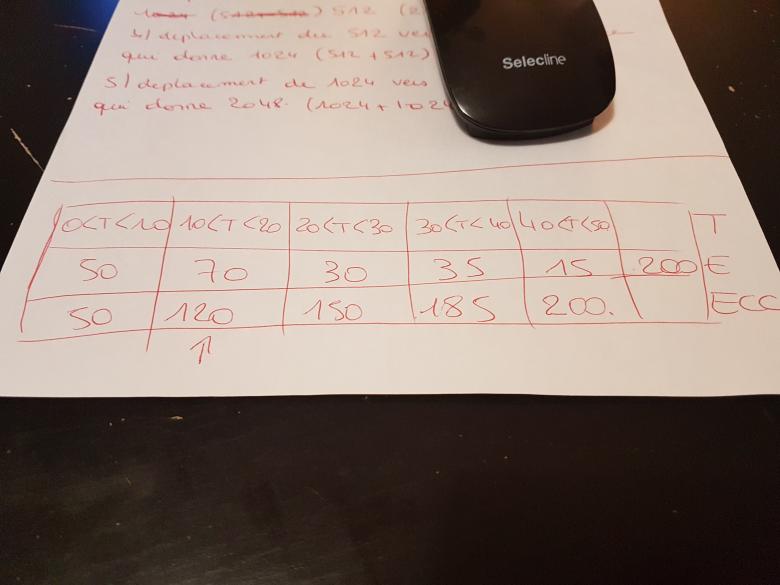 1024 (512+512) 512 (2
4/ deplacement des 512 ve
qui donne 1024 (512+512)
5/ deplacement de 1024 vers
qui donne 2048. (1024+1024
Selecline
0<T<10 10<T<20 20<T<30 30<T<40 40<T<50 T
50 70 30 35 15 200 E
50 120 150 185 200. ECC
↑